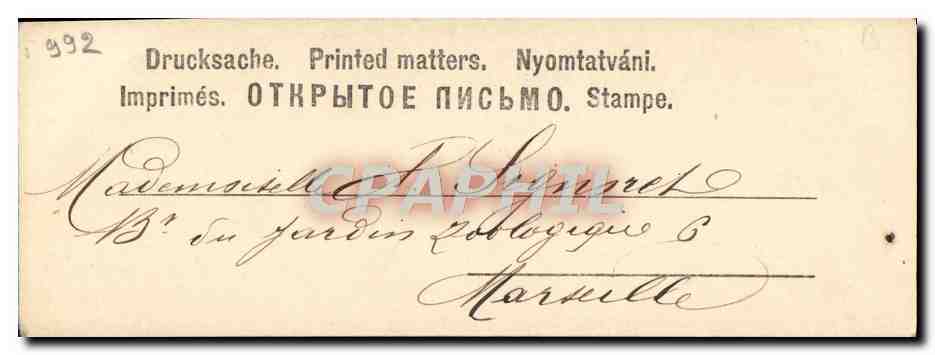 992
B
Drucksache. Printed matters. Nyomtatváni.
Imprimés. ОТКРЫТОЕ ПИСЬМО. Stampe.
CPAPHIL
Mademoiselle
Bd du Jardin Zoologique 6
Marseille